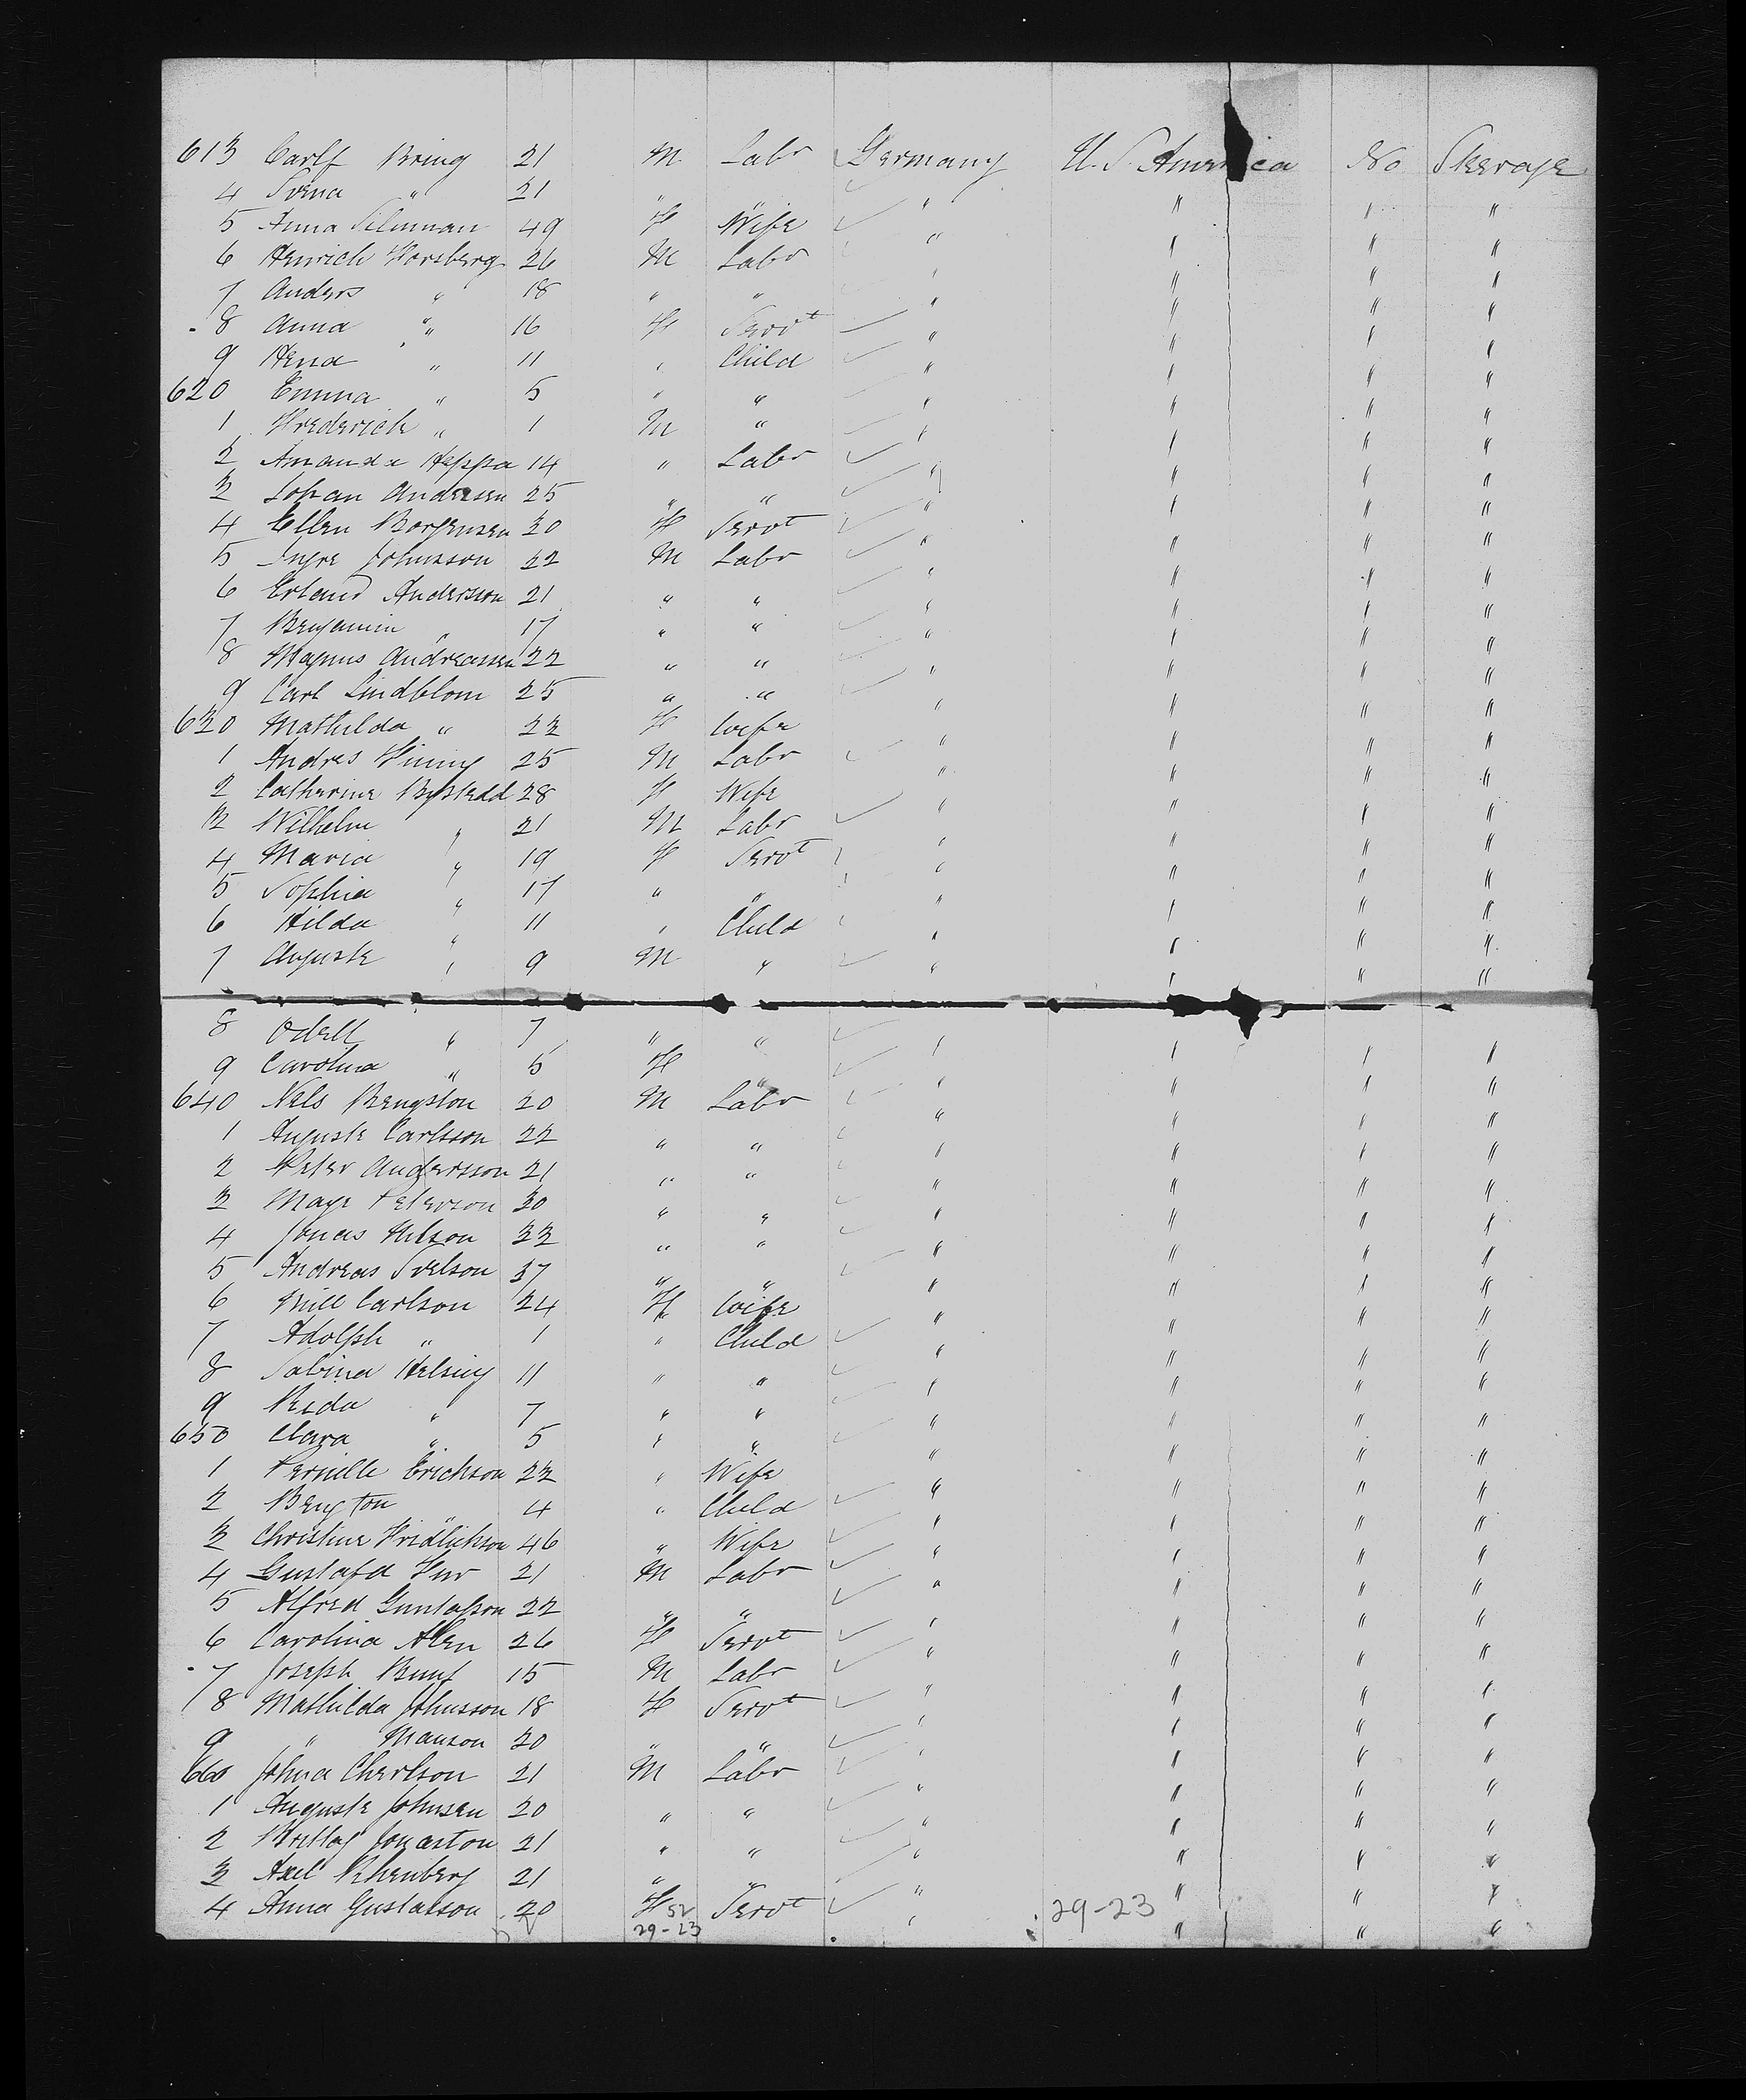 613 Carlf Bring 21 M Labr Germany U. S. America No Steerage
4 Svena " 21 " " " " "
5 Anna Silmman 49 F Wife " " " "
6 Henrich Forsberg 26 M Labr " " " "
7 Anders " 18 " " " " " "
8 Anna " 16 F Servt " " " "
9 Hena " 11 " Child " " " "
620 Emma " 5 " " " " " "
1 Frederich " 1 M " " " " "
2 Amanda Heppa 14 " Labr " " " "
3 Johan Andersen 25 " " " " " "
4 Ellen Borjensen 30 F Servt " " " "
5 Ingre Johnsson 22 M Labr " " " "
6 Erland Andersson 21 " " " " " "
7 Benjamin " 17 " " " " " "
8 Magnus Andreassen 22 " " " " " "
9 Carl Lindblom 25 " " " " " "
630 Mathilda " 23 F Wife " " " "
1 Andres Fining 25 M Labr " " " "
2 Catherine Bystedd 28 F Wife " " " "
3 Wilhelm " 21 M Labr " " " "
4 Maria " 19 F Servt " " " "
5 Sophia " 17 " " " " " "
6 Hilda " 11 " Child " " " "
7 Auguste " 9 M " " " " "
8 Odell " 7 " " " " " "
9 Carolina " 5 F " " " " "
640 Nels Bengston 20 M Labr " " " "
1 Auguste Carlsson 22 " " " " " "
2 Peter Andersson 21 " " " " " "
3 Mayr Peterson 30 " " " " " "
4 Jonas Nilson 33 " " " " " "
5 Andreas Svelson 37 " " " " " "
6 Nill Carlson 24 F Wife " " " "
7 Adolph " 1 " Child " " " "
8 Sabina Helsing 11 " " " " " "
9 Beda " 7 " " " " " "
650 Clara " 5 " " " " " "
1 Pernille Erichson 23 " Wife " " " "
2 Bengton " 4 " Child " " " "
3 Christine Fridlickson 46 " Wife " " " "
4 Gustafa 21 M Labr " " " "
5 Alfred Gustafson 22 " " " " " "
6 Carolina Alen 26 F Servt " " " "
7 Joseph Bunt 15 M Labr " " " "
8 Mathilda Johnsson 18 F Servt " " " "
9 " Manson 20 " " " " " "
660 Johna Cherlson 21 M Labr " " " "
1 Auguste Johnsen 20 " " " " " "
2 Jonaston 21 " " " " " "
3 Axel Rhenberg 21 " " " " " "
4 Anna Gustasson 20 F Servt " " " "
52
29-23 29-23